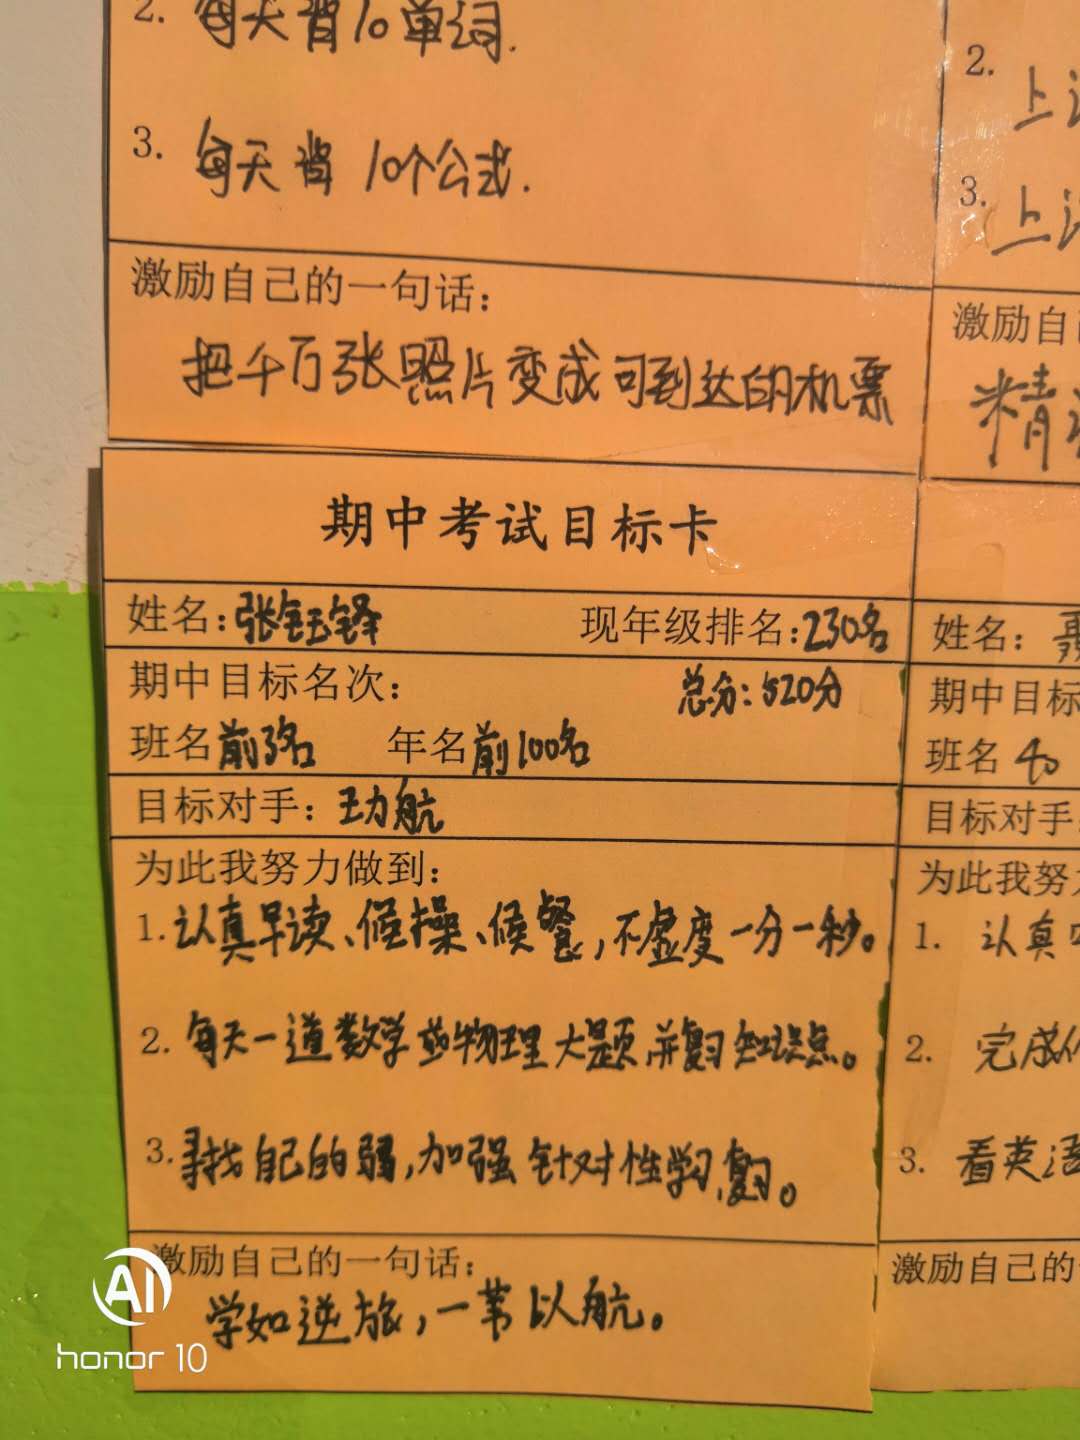 2. 每天背10单词.
3. 每天背 10个公式.
激励自己的一句话:
把千万张照片变成可到达的机票
期中考试目标卡
姓名: 张钰铎 现年级排名: 230名
期中目标名次: 总分: 520分
班名 前3名 年名 前100名
目标对手: 王力航
为此我努力做到:
1. 认真早读、候操、候餐, 不虚度一分一秒。
2. 每天一道数学或物理大题并复习知识点。
3. 寻找自己的弱, 加强针对性学习,复习。
激励自己的一句话:
学如逆旅, 一苇以航。
2. 上
3. 上
激励自
精
姓名:
期中目标
班名 40
目标对手
为此我努
1. 认真
2. 完成作
3. 看英语
激励自己的
AI
honor 10